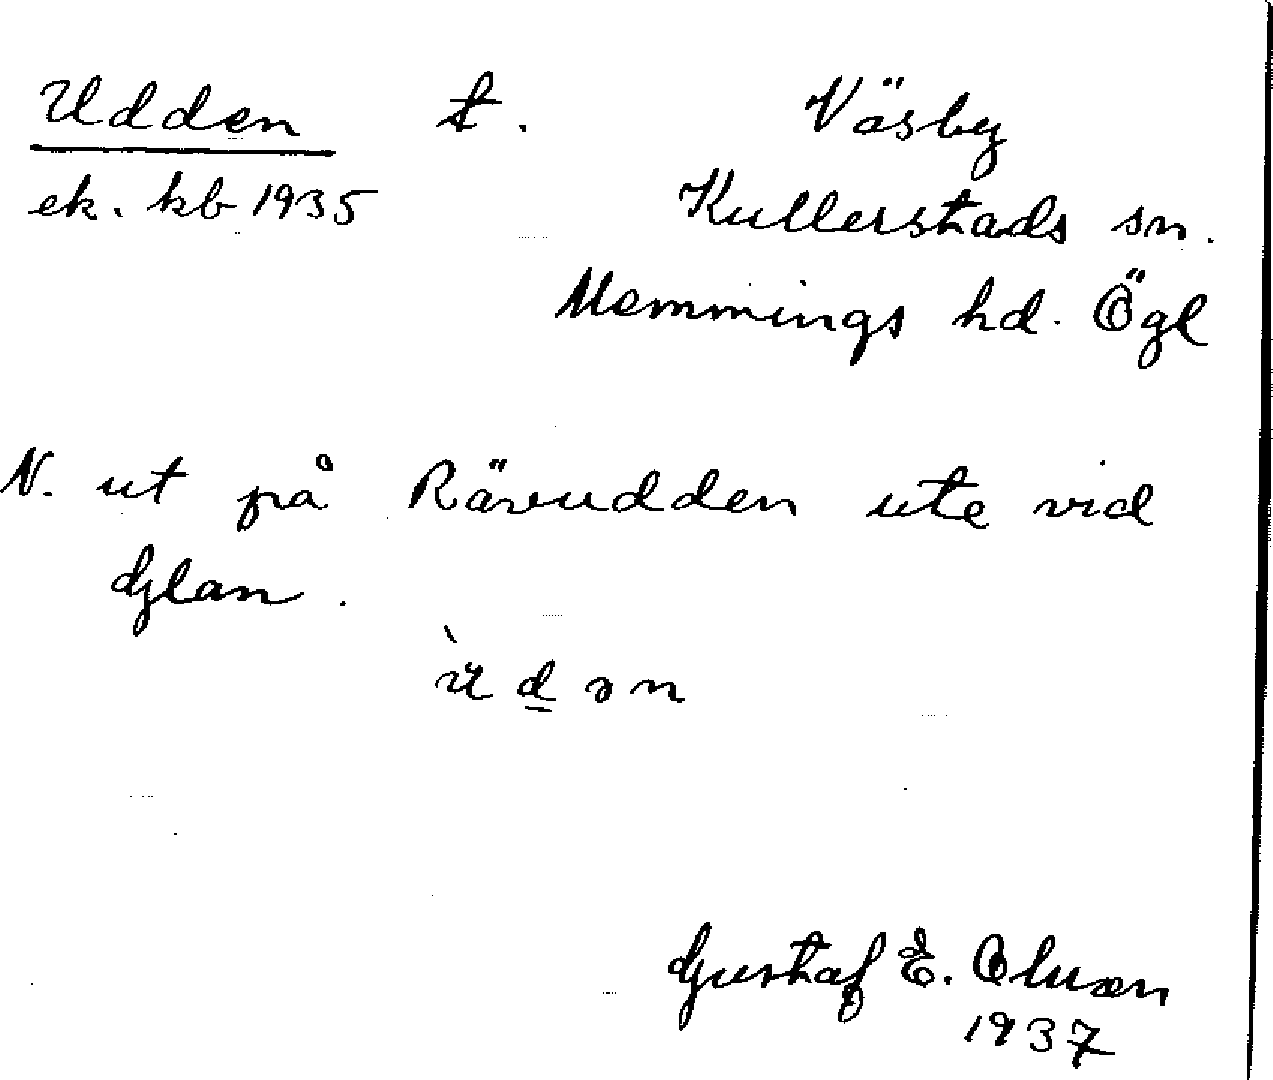 Udden t. Väsby
ek. kb 1935 Kullerstads sn.
Memmings hd. Ögl
N. ut på Rävudden ute vid
Glan.
Gustaf E. Oluson
1937